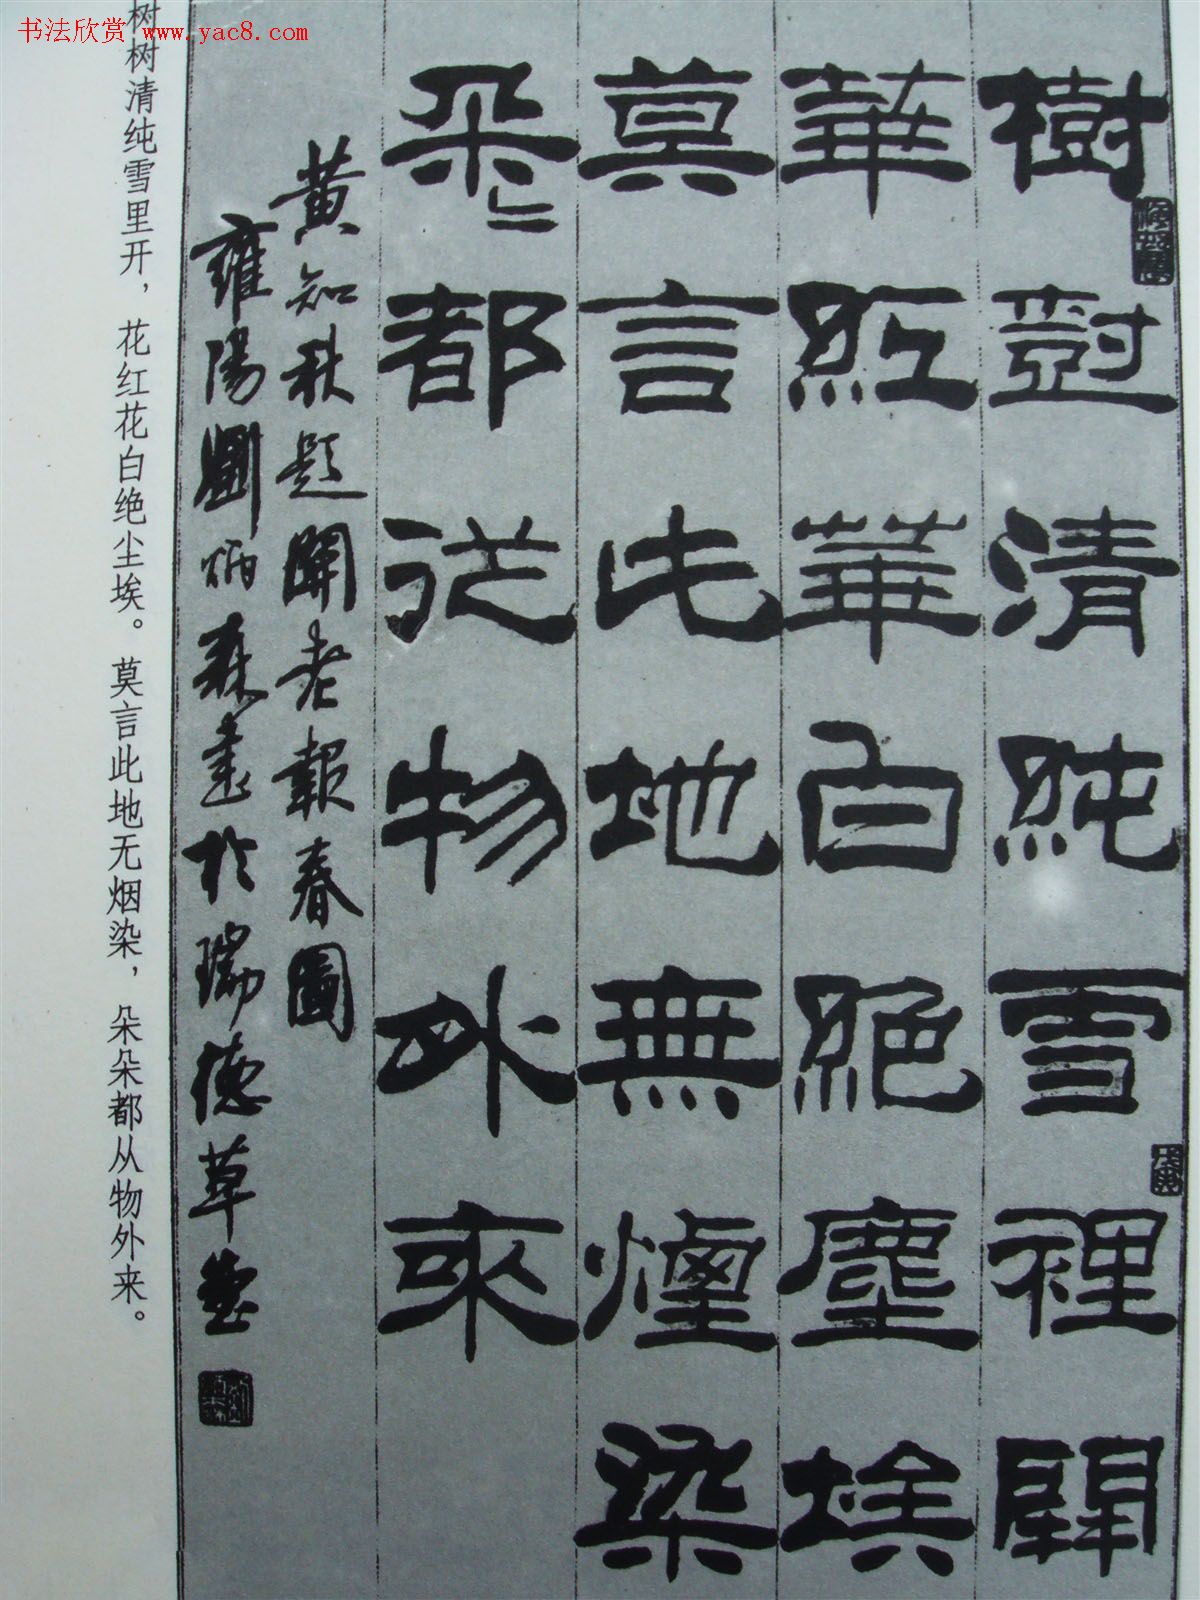 书法欣赏 www.yac8.com
樹樹清純雪裡開
華紅華白絕塵埃
莫言此地無煙染
朵〻都從物外來
黄知秋題關老報春圖
雍陽劉炳森書於瑞德草堂
树树清纯雪里开，花红花白绝尘埃。莫言此地无烟染，朵朵都从物外来。